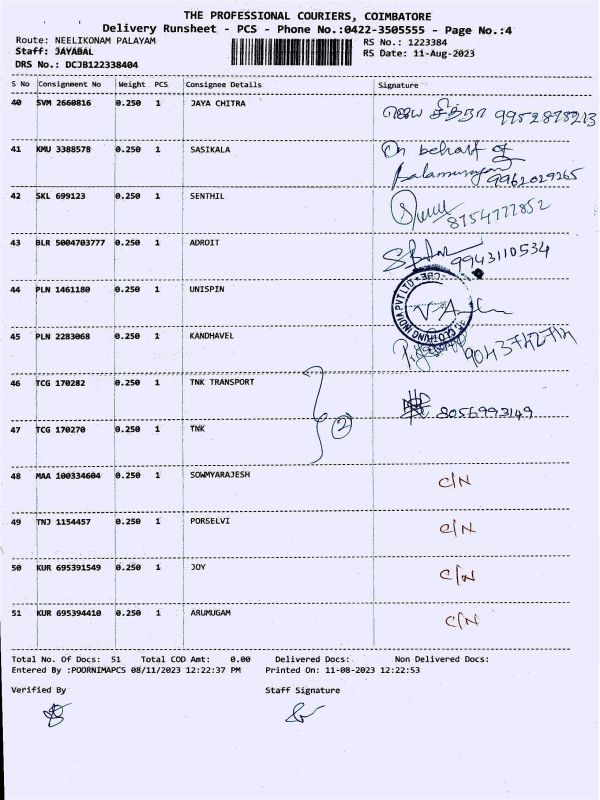 THE PROFESSIONAL COURIERS, COIMBATORE
Delivery Runsheet - PCS - Phone No.:0422-3505555 - Page No.:4
Route: NEELIKONAM PALAYAM
RS No.: 1223384
Staff: JAYABAL
RS Date: 11-Aug-2023
DRS No.: DCJB122338404
S No Consignment No Weight PCS Consignee Details Signature
40 SVM 2660816 0.250 1 JAYA CHITRA ஜெய சித்ரா 9952878213
41 KMU 3388578 0.250 1 SASIKALA On behalf of
Balamurugan 9962029265
42 SKL 699123 0.250 1 SENTHIL 8754777852
43 BLR 5004703777 0.250 1 ADROIT 9943110534
44 PLN 1461180 0.250 1 UNISPIN
CLOTHING INDIA PVT LTD CBE
45 PLN 2283068 0.250 1 KANDHAVEL
46 TCG 170282 0.250 1 TNK TRANSPORT 8056993149
2
47 TCG 170270 0.250 1 TNK
48 MAA 100334604 0.250 1 SOWMYARAJESH C/N
49 TNJ 1154457 0.250 1 PORSELVI C/N
50 KUR 695391549 0.250 1 JOY C/N
51 KUR 695394410 0.250 1 ARUMUGAM C/N
Total No. Of Docs: 51 Total COD Amt: 0.00 Delivered Docs: Non Delivered Docs:
Entered By :POORNIMAPCS 08/11/2023 12:22:37 PM Printed On: 11-08-2023 12:22:53
Verified By Staff Signature